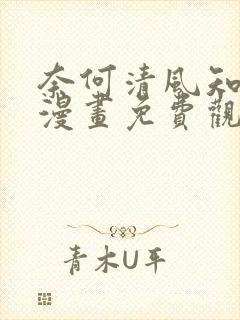 奈何清风知
漫畫免費觀
青木U平